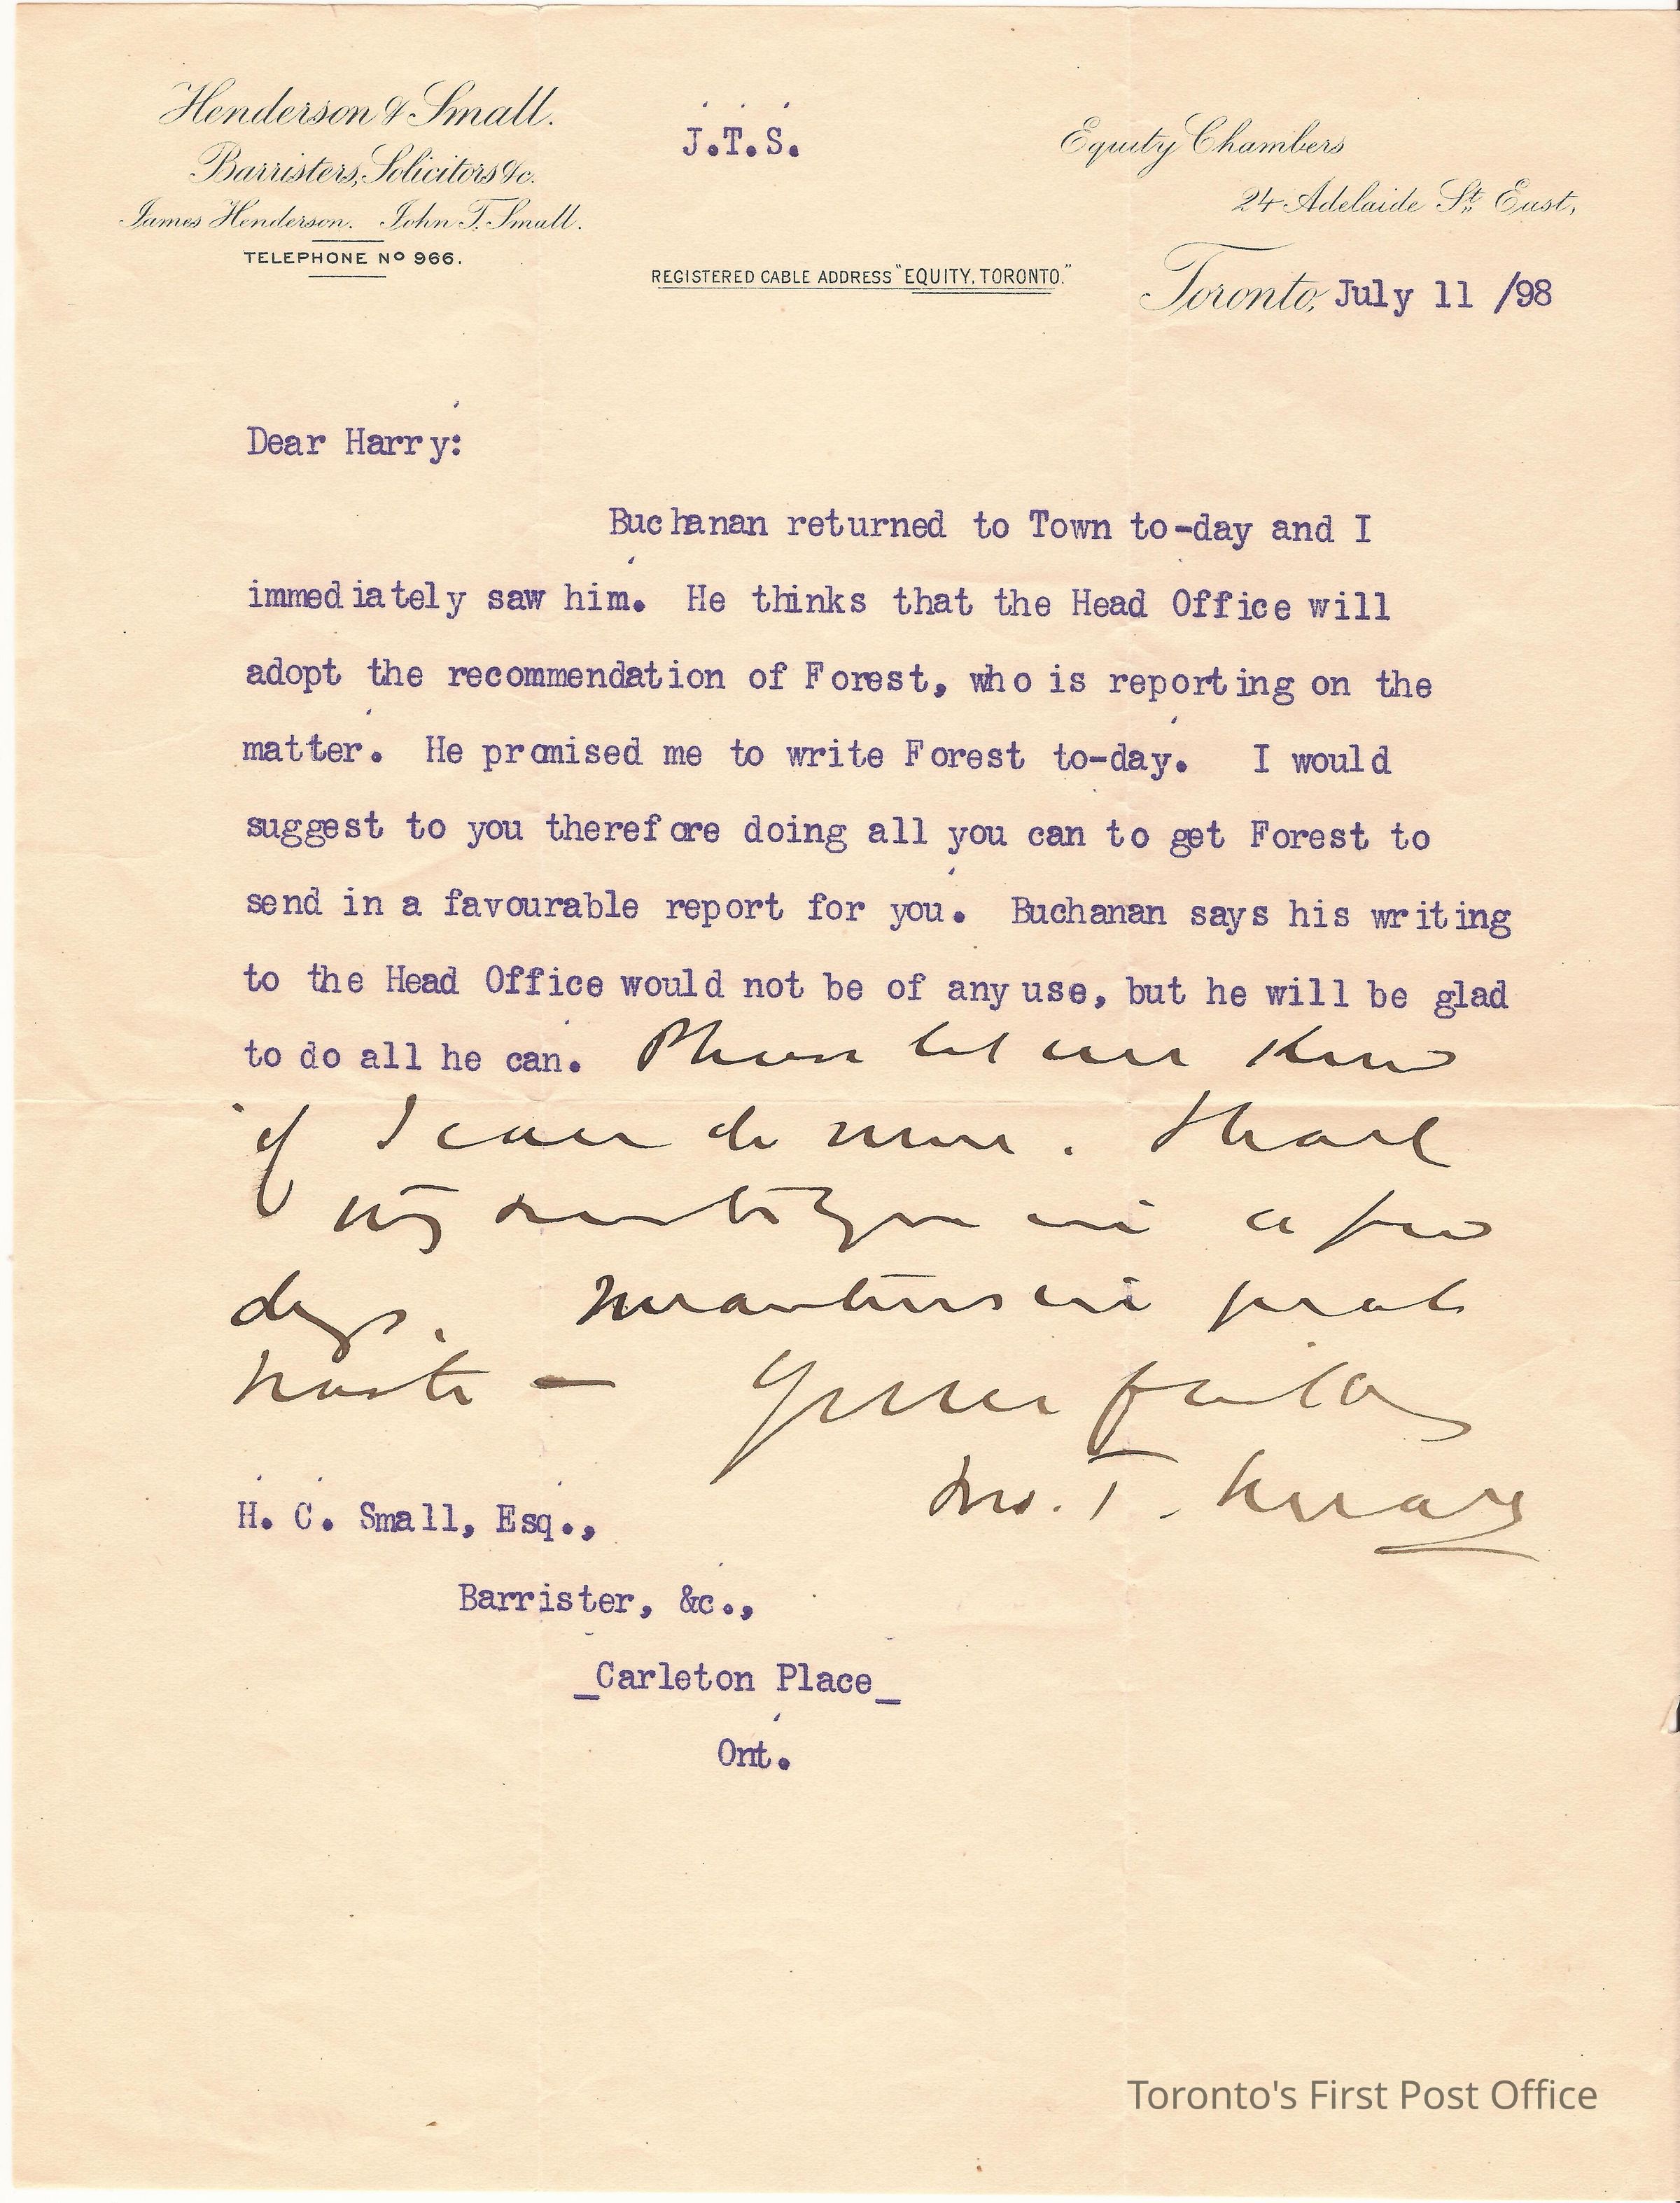 Henderson & Small.
Barristers, Solicitors &c.
James Henderson. John T. Small.
TELEPHONE No 966.
J.T.S.
REGISTERED CABLE ADDRESS "EQUITY, TORONTO."
Equity Chambers
24 Adelaide St. East,
Toronto, July 11 /98
Dear Harry:
Buchanan returned to Town to-day and I
immediately saw him. He thinks that the Head Office will
adopt the recommendation of Forest, who is reporting on the
matter. He promised me to write Forest to-day. I would
suggest to you therefore doing all you can to get Forest to
send in a favourable report for you. Buchanan says his writing
to the Head Office would not be of any use, but he will be glad
to do all he can. Please let me know
if I can do more. Shall
try write you in a few
days. Meantime in great
haste — Yours faithfully
Jno. T. Small
H. C. Small, Esq.,
Barrister, &c.,
_Carleton Place_
Ont.
Toronto's First Post Office